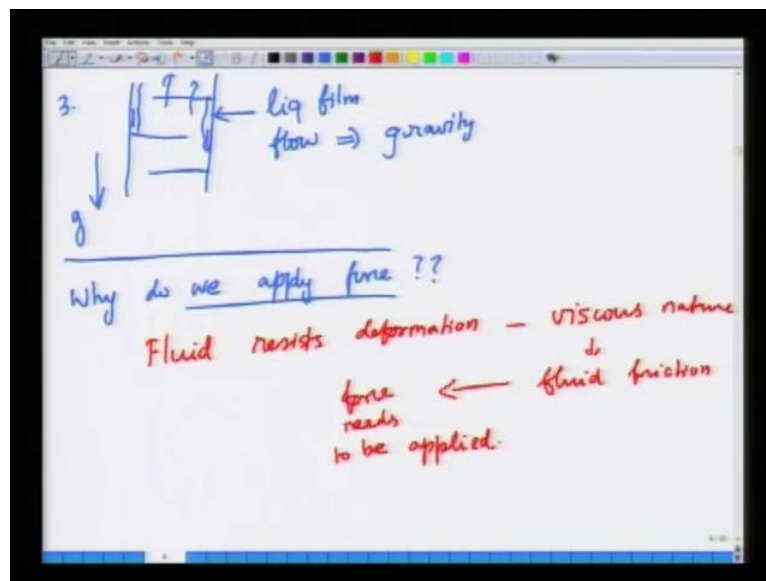 3.
liq film
flow ⇒ gravity
g
Why do we apply force ??
Fluid resists deformation - viscous nature
↓
force ← fluid friction
needs
to be applied.